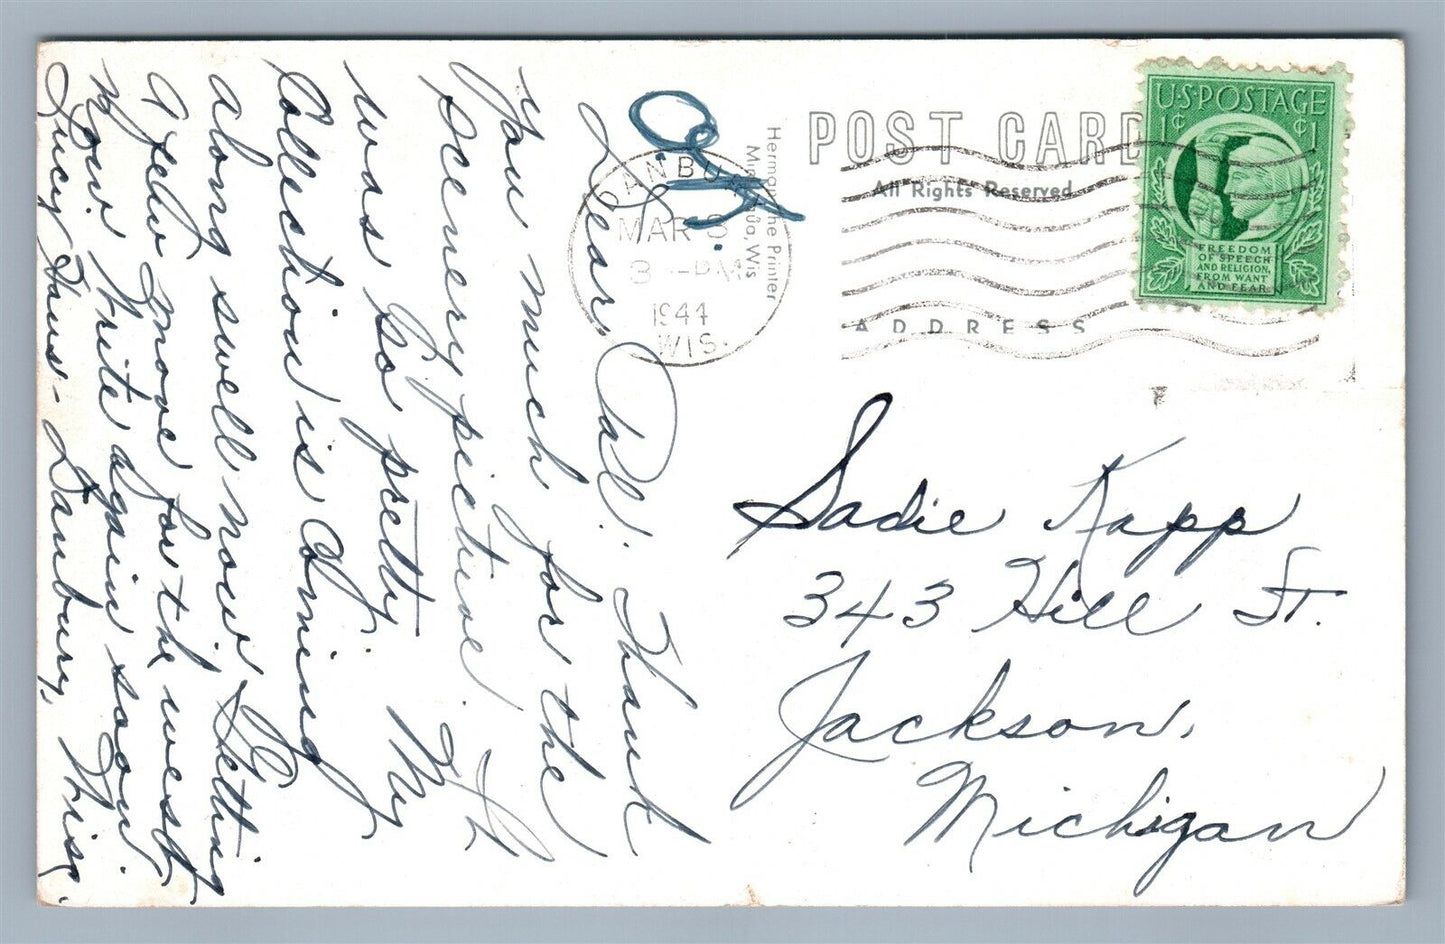 POST CARD
All Rights Reserved
ADDRESS
U·S·POSTAGE
1¢ ¢1
FREEDOM
OF SPEECH
AND RELIGION,
FROM WANT
AND FEAR
DANBURY
MAR 3
3 PM
1944
WIS.
Herman the Printer
Wis
Sadie Kapp
343 Hill St.
Jackson,
Michigan
O.K.
Dear Pal. Thank
You much for the
Scenery picture. It
was So pretty. My
Collection is Coming
along swell now. Getting
a few more for the west
Now. Write again soon.
Lucy Haus - Danbury, Wisc.